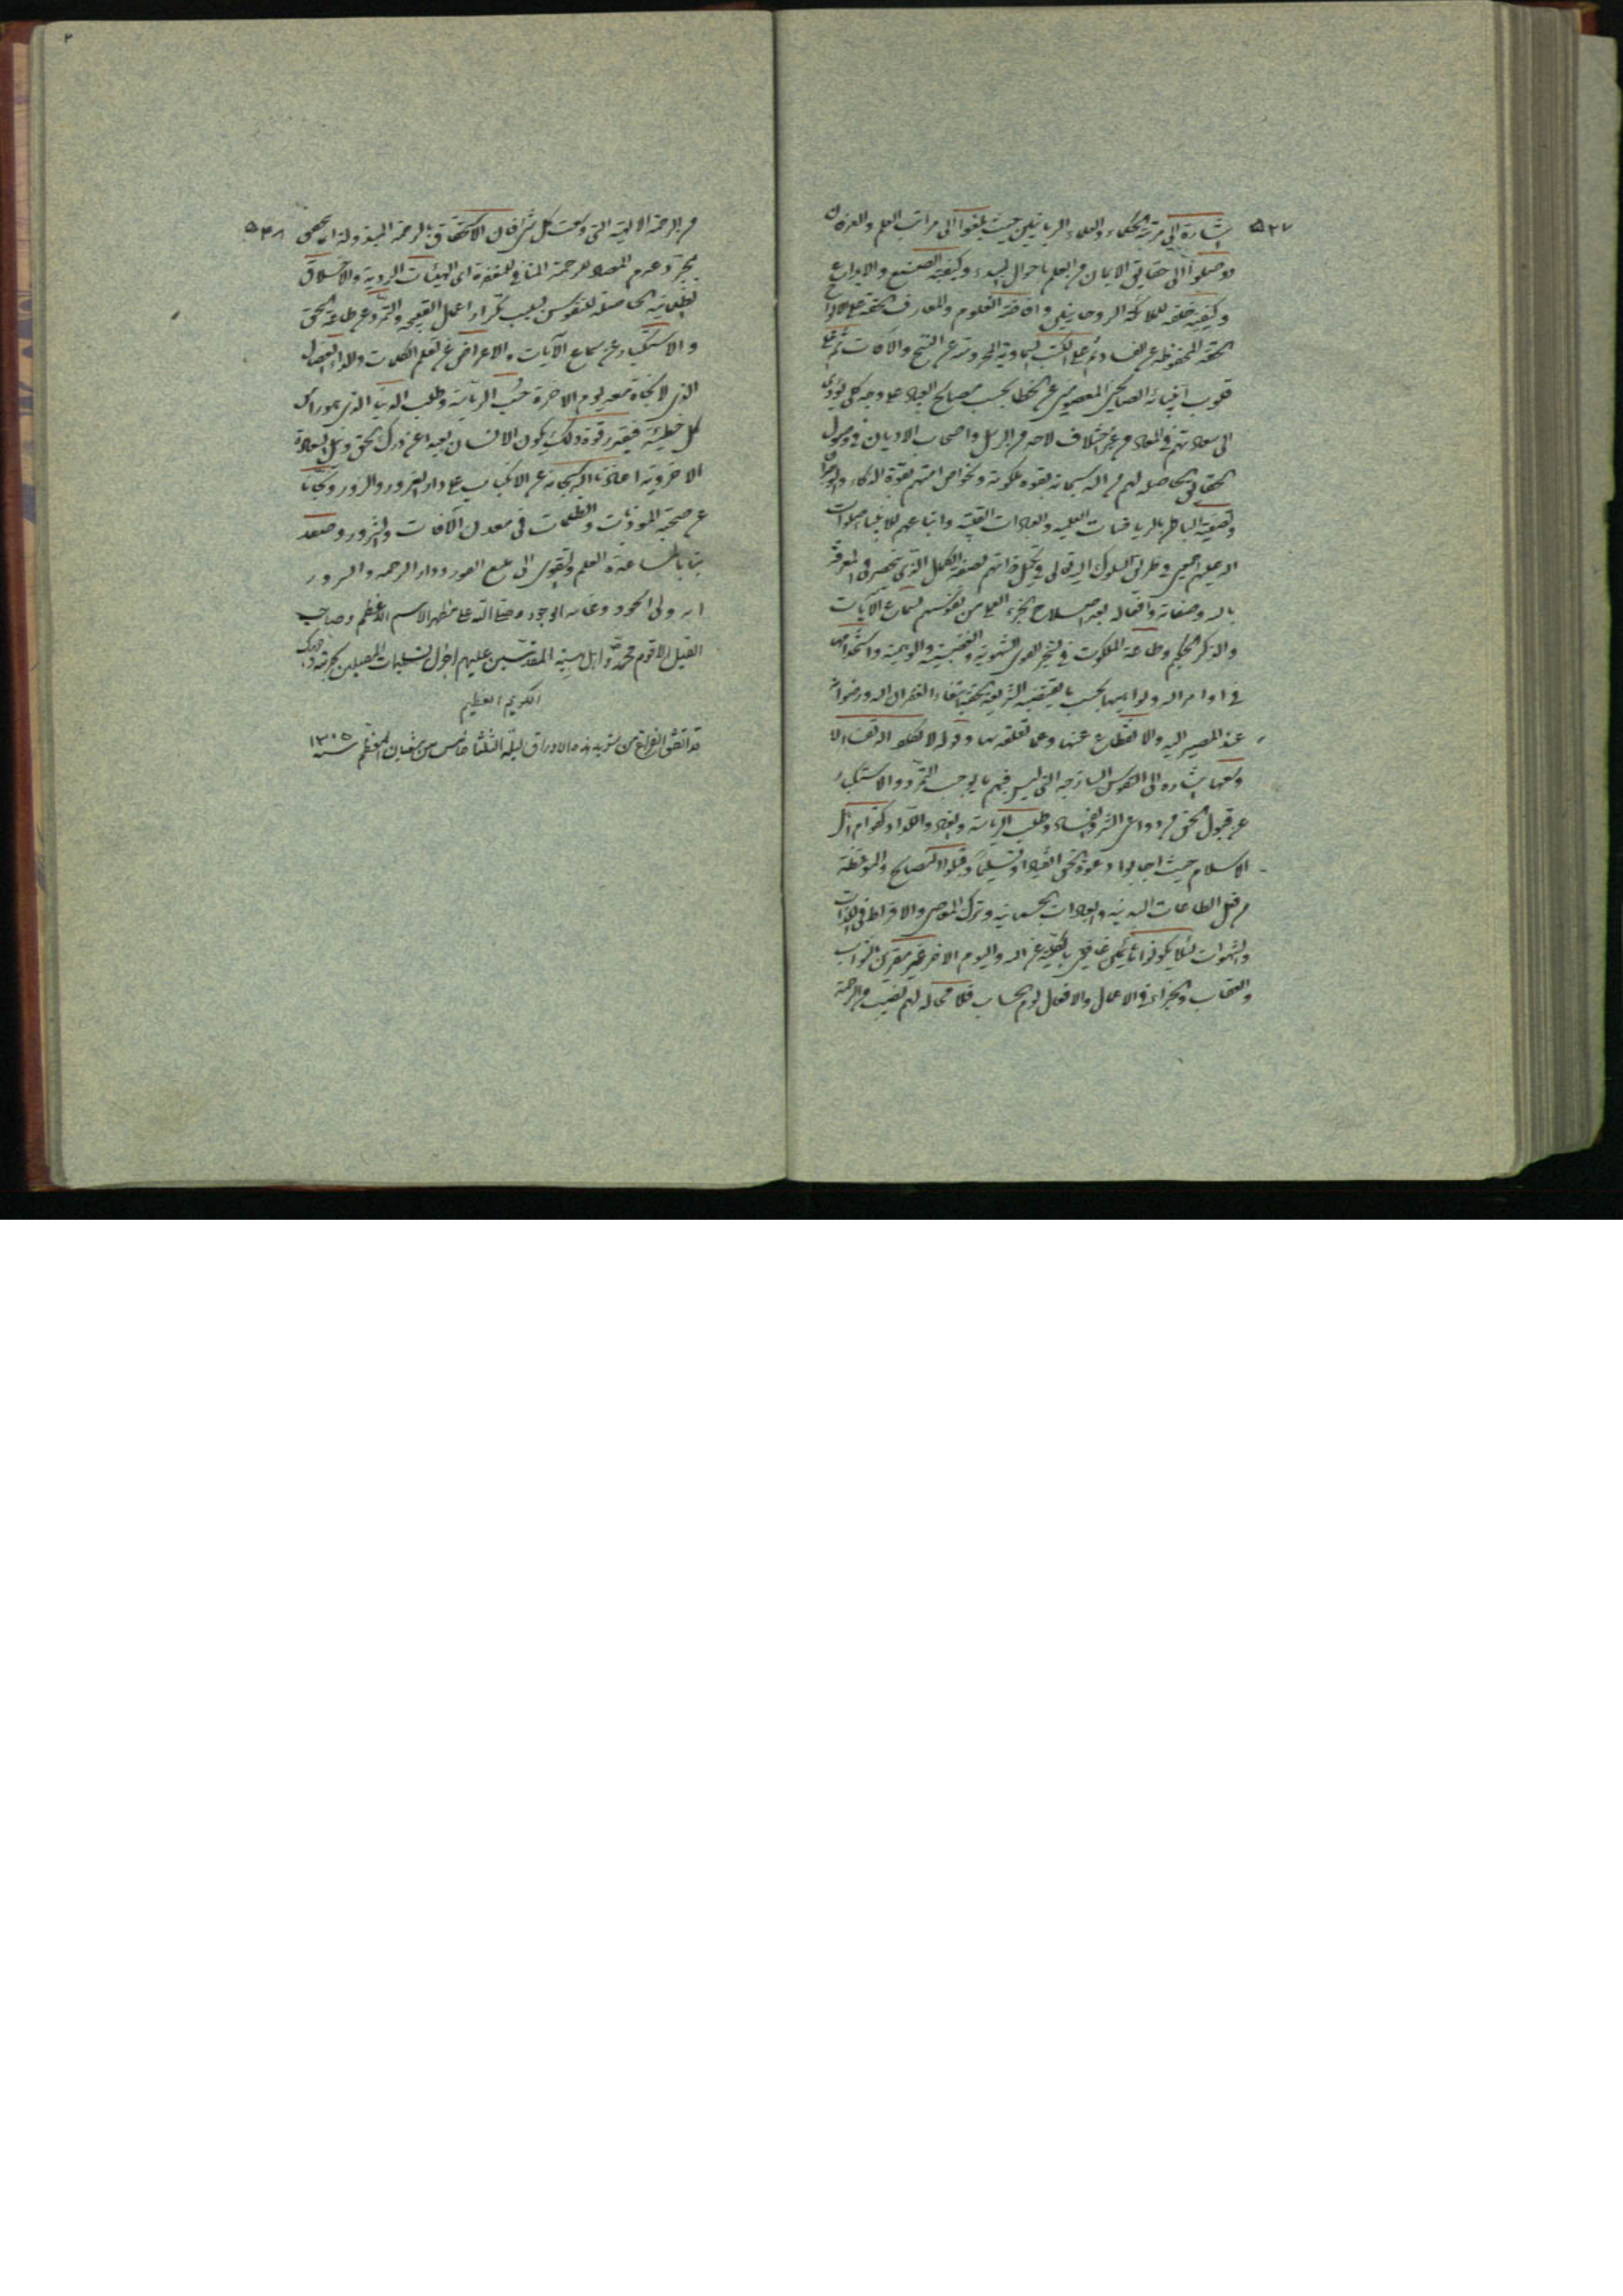 ۵۳۷
اشارة الى مرتبة الحكماء والعلماء الربانيين حيث بلغوا الى مراتب العلم والعرفان
ووصلوا الى حقايق الايمان من العلم باحوال المبدء وكيفية الصنع والابداع
وكيفية خلقة الملائكة الروحانيين وافاضة العلوم والمعارف الحقة على الالواح
الحقة المحفوظة عن الفساد ثم على الكتب السماوية المحروسة عن النسخ والافات ثم على
قلوب انبيائه الصالحين المعصومين عن الخطا بحسب مصالح العباد على وجه كلي يؤدي
الى سعادتهم في المعاد من غير اختلاف لاحد من الرسل واصحاب الاديان في وصول
الحقايق الحاصلة لهم من الله سبحانه بقوة ملكوتية ولخواص امتهم بقوة الذكاء
وتصفية الباطن بالرياضات العلمية والعبادات القلبية واتباعهم للانبياء صلوات
الله عليهم اجمعين في طريق السلوك الى الله تعالى وتكميل ذاتهم بصفة الكمال الذي ينحصر في المعرفة
بالله وصفاته وافعاله بعد اصلاح الجزء العملي من نفوسهم لسماع الآيات
والذكر الحكيم وطاعة الملكوت في تسخير القوى الشهوية والغضبية والوهمية واستخدامها
في اوامر الله ونواهيها بحسب ما يقتضيه الشريعة الحقة ابتغاء لغفران الله ورضوانه
عند المصير اليه والانقطاع عنها وعما تعلقه بها وقوله لا يكلف الله نفسا الا
وسعها اشارة الى النفوس الساذجة التي ليس فيهم ما يوجب التمرد والاستكبار
عن قبول الحق من دواعي الشر والفساد وطلب الرياسة والعناد واللداد كعوام اهل
الاسلام حيث اجابوا دعوة الحق انقيادا وتسليما وقبلوا النصايح والموعظة
من فعل الطاعات البدنية والعبادات الجسمانية وترك المعاصي والافراط في اللذات
والشهوات لئلا يكونوا غافلين بالكلية عن الله واليوم الاخر غير مقرين بالثواب
والعقاب والجزاء في الاعمال والافعال يوم الحساب فلا محالة لهم نصيب من الرحمة
۵۳۸
من الرحمة الالهية التي وسعت كل شئ فان الاستحقاق بالرحمة المبذولة انما يحصل
بمجرد عدم المضاد للرحمة المنافي للمغفرة اى الهيئات الردية والاخلاق
الظلمانية الحاصلة للنفوس بسبب تكرار اعمال القبيحة والتمرد عن طاعة الحق
والاستكبار عن سماع الآيات والاعراض عن تعلم الكلمات والداء العضال
الذي لا نجاة معه ليوم الاخرة حب الرياسة وطلب الدنيا الذي هو راس
كل خطيئة فبقدر قوة ذلك يكون الانسان بعيدا عن درك الحق ونيل السعادة
الاخروية اعاذنا الله سبحانه عن الانكباب على دار الغرور والزور ونجانا
عن صحبة الموذيات والظلمات في معدن الآفات والشرور وصعد
بنا بمساعدة العلم والتقوى الى منبع النور ودار الرحمة والسرور
انه ولي الجود وغاية الوجود وصلى الله على مظهر الاسم الاعظم وصاحب
الفيض الاقوم محمد وأهل بيته المقدسين عليهم افضل تسليمات المصلين
الكريم العظيم
قد اتفق الفراغ من تسويد هذه الاوراق ليلة الثلثا خامس من شعبان المعظم سنه ۱۳۰۵